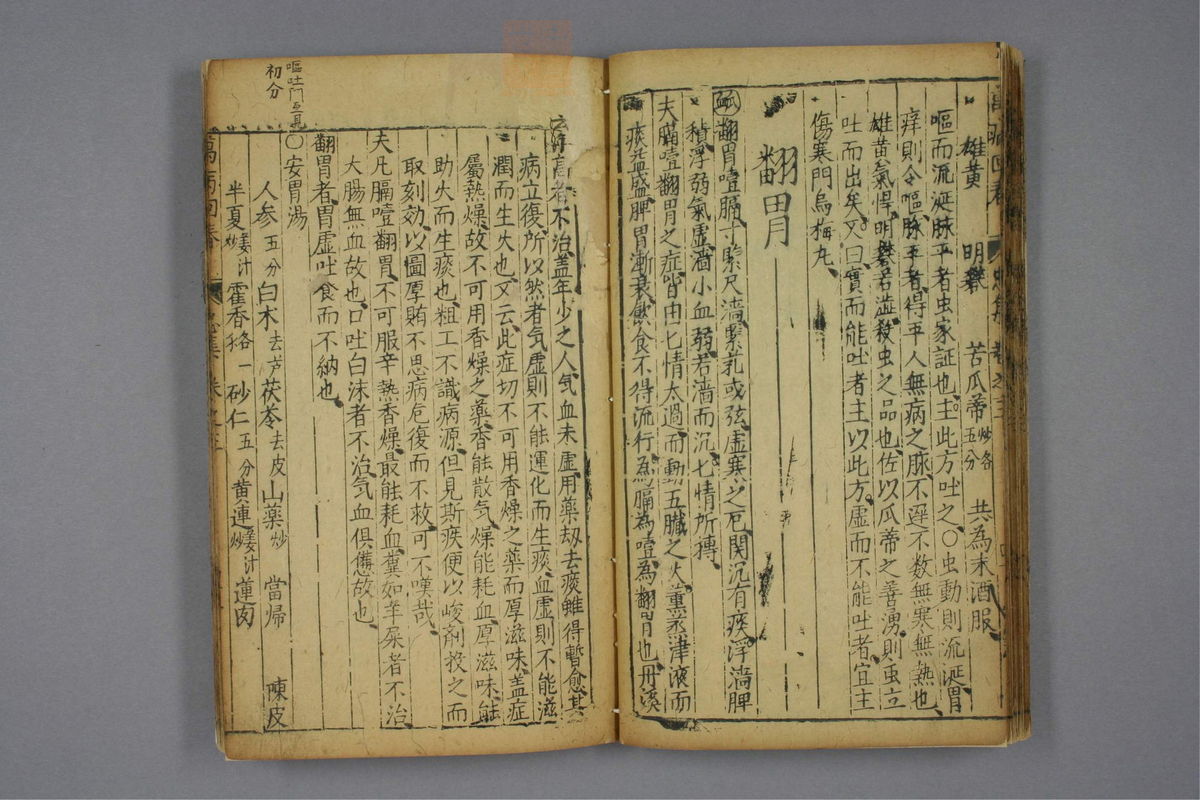 雄黄 明礬 苦瓜蒂 五分 炒各 共為末酒服
嘔而流涎脉平者虫家証也主此方吐之○虫動則流涎胃
痒則令嘔脉平者得平人無病之脉不遲不数無寒無熱也
雄黄氣悍明礬若澁殺虫之品也佐以瓜蒂之善湧則虫立
吐而出矣又曰實而能吐者主以此方虚而不能吐者宜主
傷寒門烏梅丸
翻胃
脉翻胃噎膈寸緊尺濇緊芤或弦虚寒之厄関沉有痰浮濇脾
積浮弱氣虚濇小血弱若濇而沉七情所摶
夫膈噎翻胃之症皆由七情太過而動五臟之火薰蒸津液而
痰益盛脾胃漸衰飲食不得流行為膈為噎為翻胃也丹溪
云年高者不治盖年少之人气血未虚用藥刼去痰雖得暫愈其
病立復所以然者气虚則不能運化而生痰血虚則不能滋
潤而生火也又云此症切不可用香燥之藥而厚滋味盖症
屬熱燥故不可用香燥之藥香能散气燥能耗血厚滋味能
助火而生痰也粗工不識病源但見斯疾便以峻劑投之而
取刻効以圖厚賄不思病危復而不救可不嘆哉
夫凡膈噎翻胃不可服辛熱香燥最能耗血糞如羊屎者不治
大腸無血故也口吐白沫者不治气血俱憊故也
翻胃者胃虚吐食而不納也
○安胃湯
人参 五分 白木 去芦 茯苓 去皮 山藥 炒 當帰 陳皮
半夏 姜汁炒 霍香 各一 砂仁 五分 黄連 姜汁炒 蓮肉
嘔吐門互見
初分